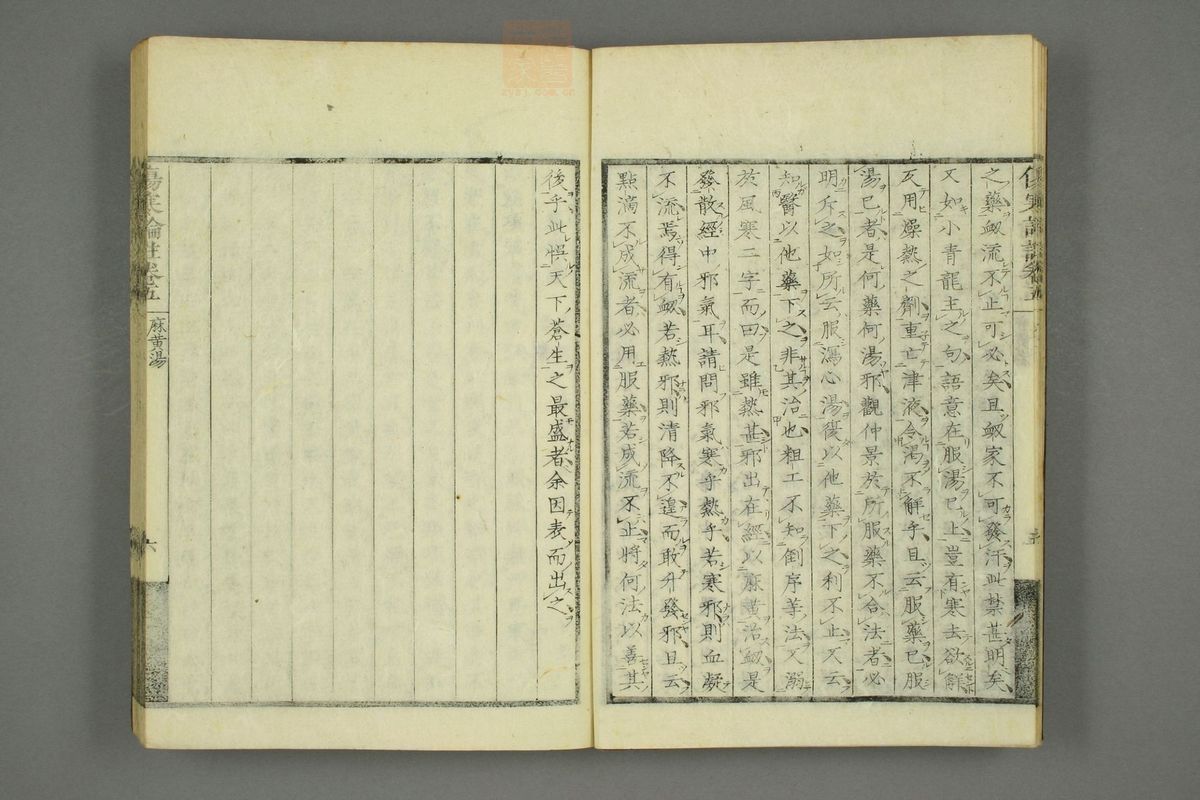 之藥衂流不止可必矣且衂家不可發汗此禁甚明矣
又如小青龍主之句語意在服湯已上豈有寒去欲解
反用燥熱之劑重亡津液令渴不解乎且云服藥已服
湯已者是何藥何湯邪觀仲景於所服藥不合法者必
明斥之如所云服瀉心湯復以他藥下之利不止又云
知醫以他藥下之非其治也粗工不知倒序等法又溺
於風寒二字而曰是雖熱甚邪出在經以麻黄治衂是
發散經中邪氣耳請問邪氣寒乎熱乎若寒邪則血凝
不流焉得有衂若熱邪則清降不遑而敢升發邪且云
點滴不成流者必用服藥若成流不止將何法以善其
後乎此悞天下蒼生之最盛者余因表而出之
傷寒論註卷五
麻黄湯
六